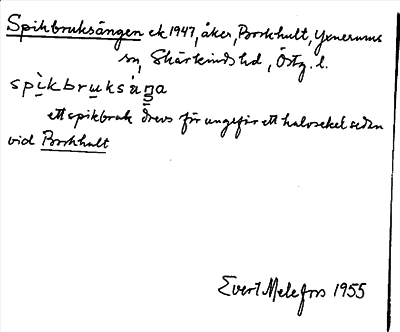 Spikbruksängen ek 1947, åker, Borkhult, Yxnerums
sn, Skärkinds hd, Östg. l.
spìkbruksáŋa
ett spikbruk drevs för ungefär ett halvsekel sedan
vid Borkhult
Evert Melefors 1955